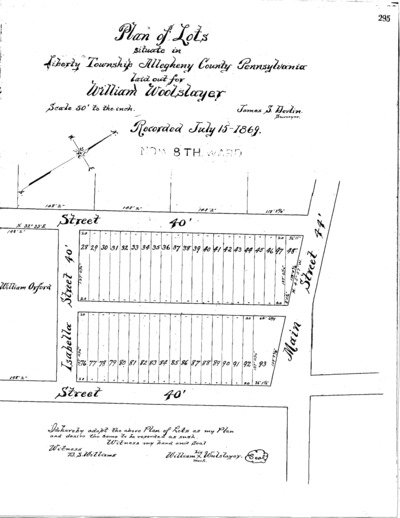 295
Plan of Lots
situate in
Liberty Township Allegheny County Pennsylvania
laid out for
William Woolslayer
Scale 50' to the inch.
James S Devlin
Surveyor.
Recorded July 15-1869.
NOW 8TH. WARD
Street 40'
N. 32° 22' E
28 29 30 31 32 33 34 35 36 37 38 39 40 41 42 43 44 45 46 47 48
William Oxford
Isabella Street 40'
Main Street 44'
76 77 78 79 80 81 82 83 84 85 86 87 88 89 90 91 92 93
Street 40'
I hereby adopt the above Plan of Lots as my Plan
and desire the same to be recorded as such.
Witness my hand and Seal
Witness
B. S. Williams
William X Woolslayer. Seal
his
mark